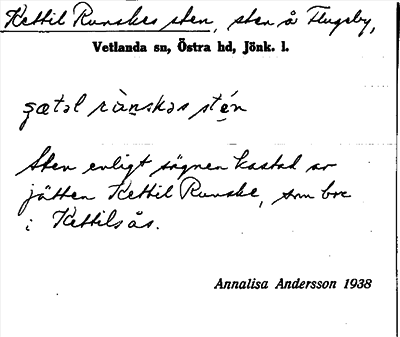 Kettil Runskes sten, sten å Flugeby,
Vetlanda sn, Östra hd, Jönk. l.
sten
Sten enligt sägnen kastad av
jätten Kettil Runske, som bor
i Kettilsås.
Annalisa Andersson 1938